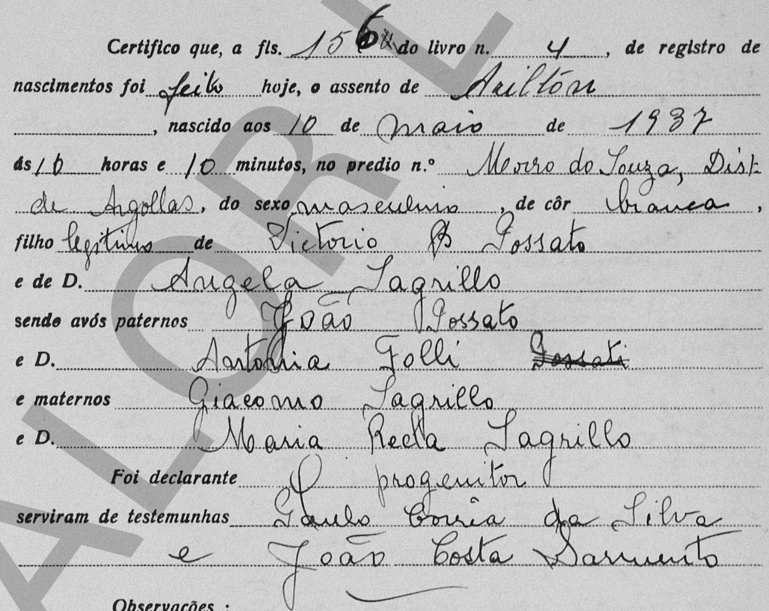 Certifico que, a fls. 156 do livro n. 4, de registro de
nascimentos foi feito hoje, o assento de Ailton
, nascido aos 10 de maio de 1937
ás 10 horas e 10 minutos, no predio n.º Morro do Souza, Dist.
de Argollas, do sexo masculino, de côr branca,
filho legitimo de Victorio Possato
e de D. Angela Sagrillo
sendo avós paternos João Possato
e D. Antonia Folli Possati
e maternos Giacomo Sagrillo
e D. Maria Recla Sagrillo
Foi declarante O progenitor
serviram de testemunhas Paulo Corrêa da Silva
e João Costa Sarmento
Observações :
VALOR L